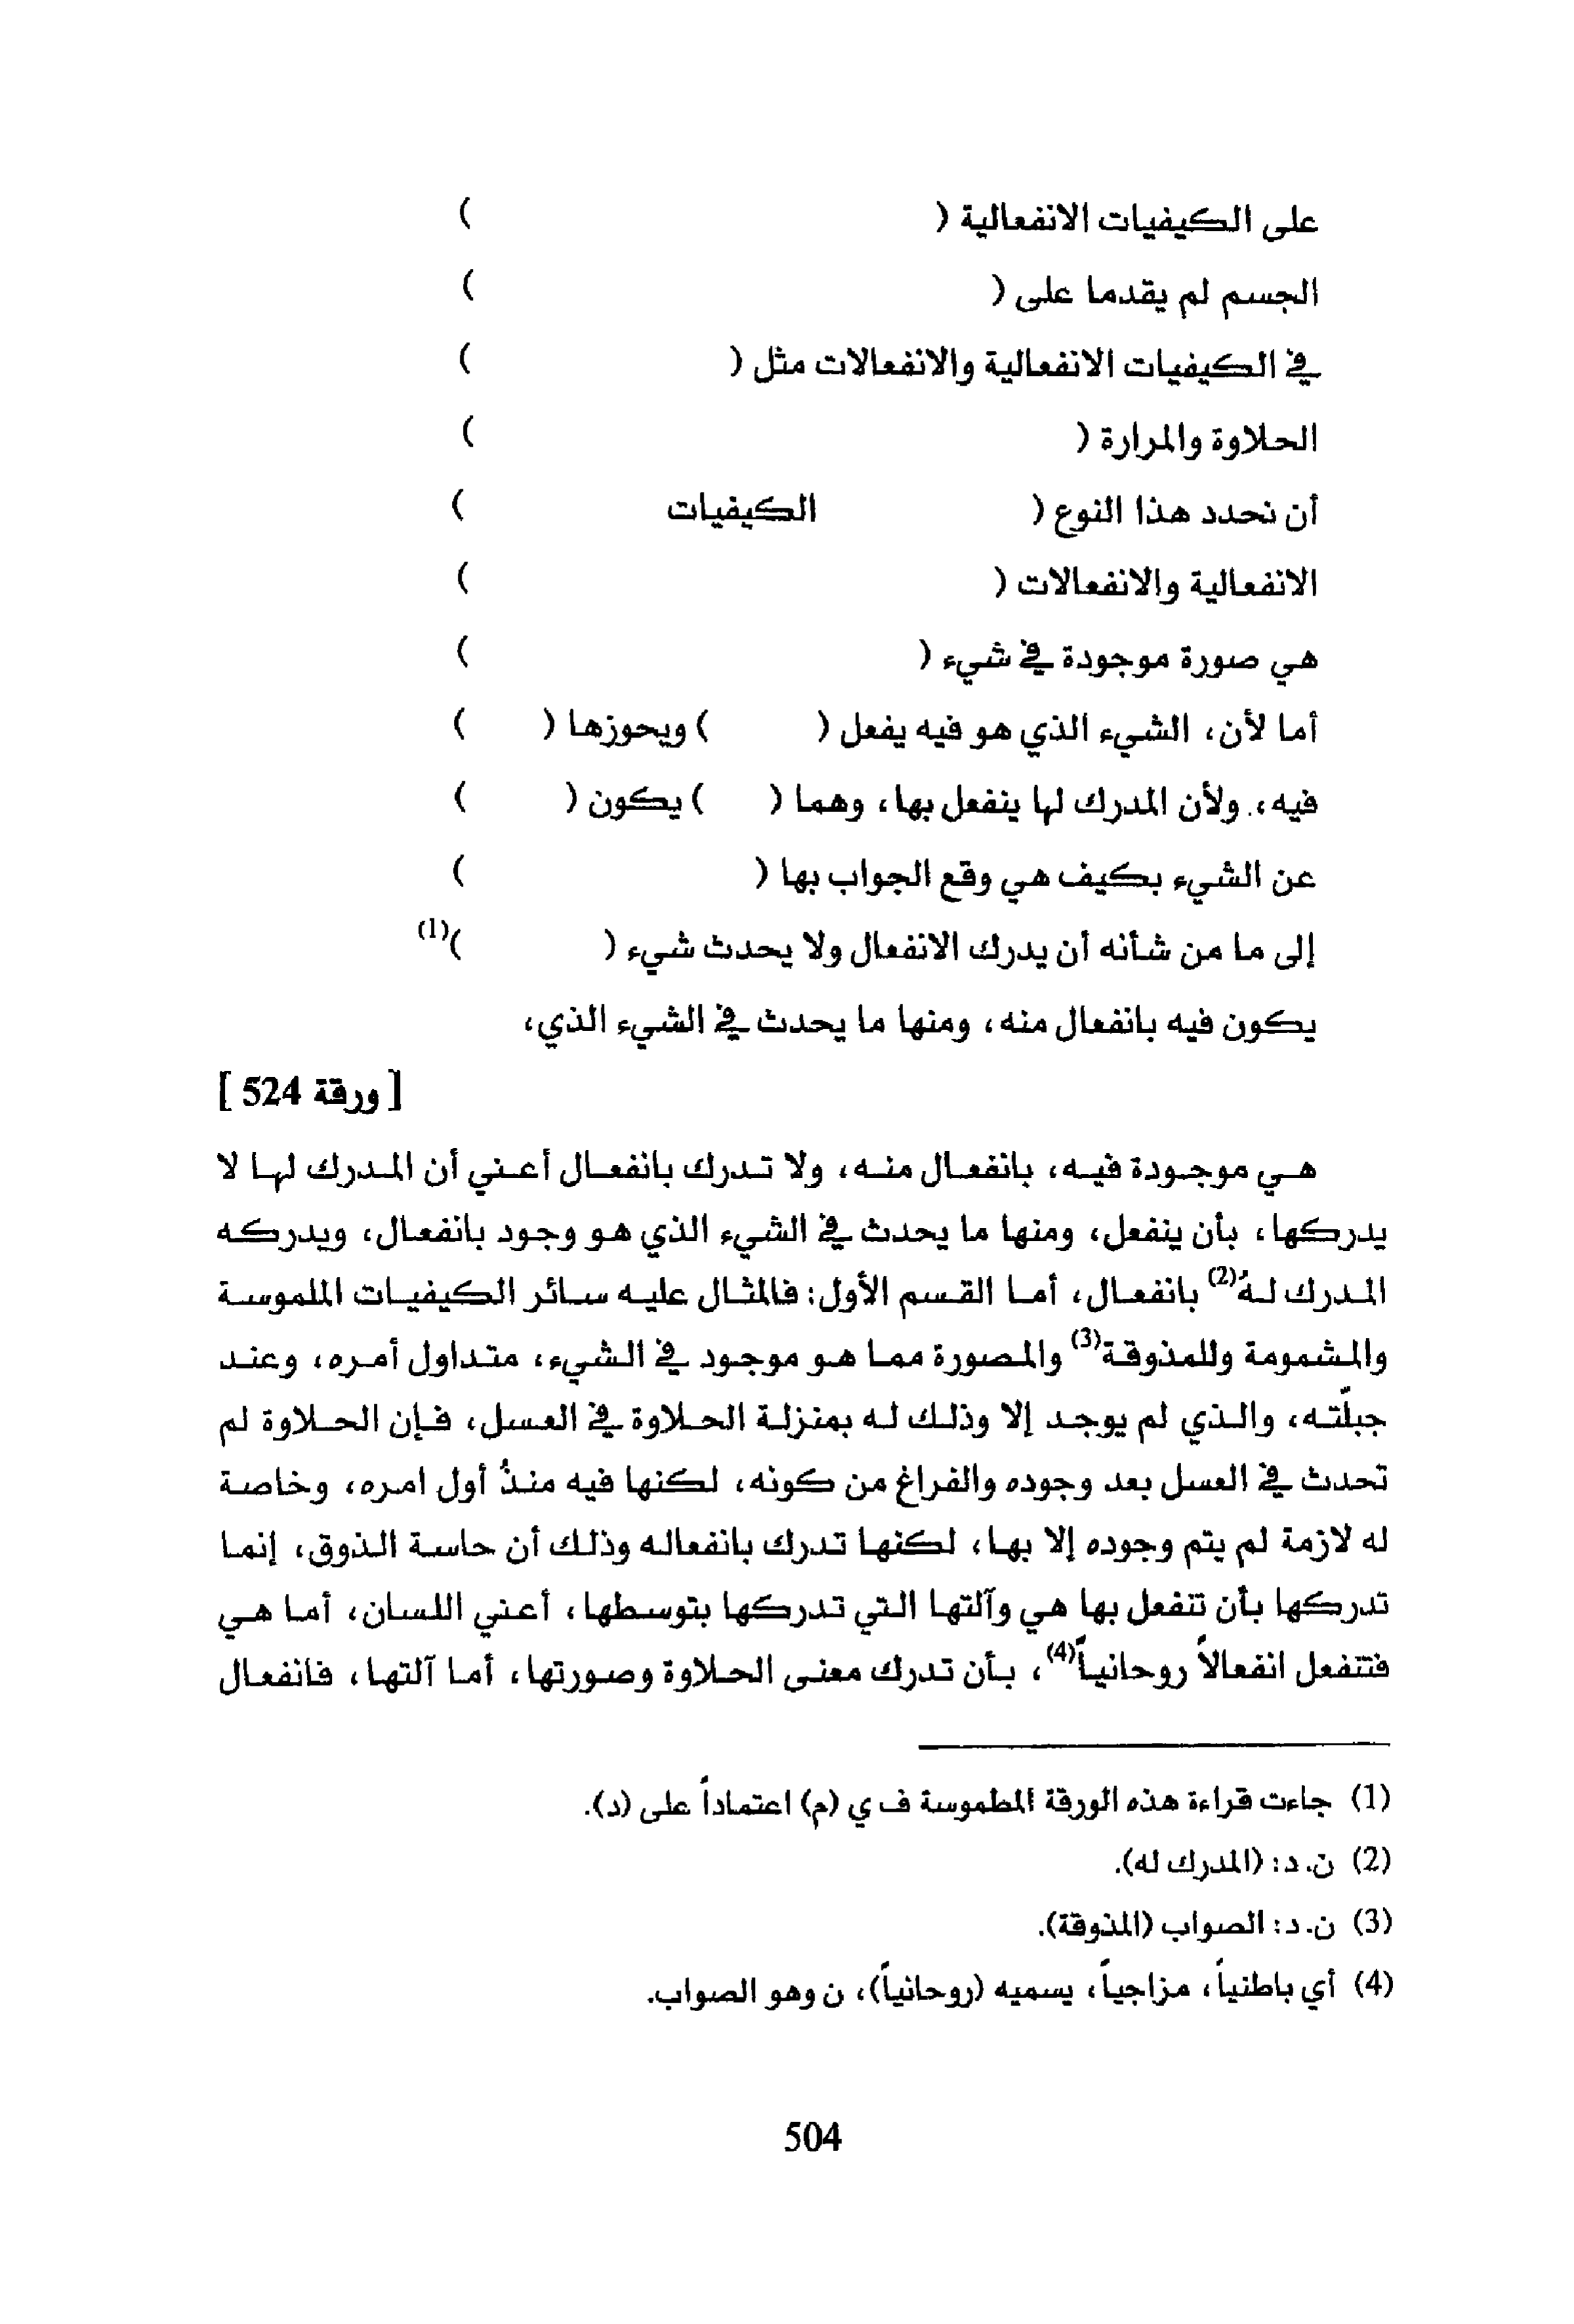 على الكيفيات الانفعالية ( )
الجسم لم يقدما على ( )
في الكيفيات الانفعالية والانفعالات مثل ( )
الحلاوة والمرارة ( )
أن نحدد هذا النوع ( الكيفيات )
الانفعالية والانفعالات ( )
هي صورة موجودة في شيء ( )
أما لأن، الشيء الذي هو فيه يفعل ( ) ويحوزها ( )
فيه،. ولأن المدرك لها ينفعل بها، وهما ( ) يكون ( )
عن الشيء بكيف هي وقع الجواب بها ( )
إلى ما من شأنه أن يدرك الانفعال ولا يحدث شيء ( )(1)
يكون فيه بانفعال منه، ومنها ما يحدث في الشيء الذي،
[ ورقة 524 ]
هي موجودة فيه، بانفعال منه، ولا تدرك بانفعال أعني أن المدرك لها لا
يدركها، بأن ينفعل، ومنها ما يحدث في الشيء الذي هو وجود بانفعال، ويدركه
المدرك لهُ(2) بانفعال، أما القسم الأول: فالمثال عليه سائر الكيفيات الملموسة
والمشمومة وللمذوقة(3) والمصورة مما هو موجود في الشيء، متداول أمره، وعند
جبلّته، والذي لم يوجد إلا وذلك له بمنزلة الحلاوة في العسل، فإن الحلاوة لم
تحدث في العسل بعد وجوده والفراغ من كونه، لكنها فيه منذُ أول امره، وخاصة
له لازمة لم يتم وجوده إلا بها، لكنها تدرك بانفعاله وذلك أن حاسة الذوق، إنما
تدركها بأن تنفعل بها هي وآلتها التي تدركها بتوسطها، أعني اللسان، أما هي
فتنفعل انفعالاً روحانياً(4)، بأن تدرك معنى الحلاوة وصورتها، أما آلتها، فانفعال
(1) جاءت قراءة هذه الورقة المطموسة ف ي (م) اعتماداً على (د).
(2) ن.د: (المدرك له).
(3) ن.د: الصواب (المذوقة).
(4) أي باطنياً، مزاجياً، يسميه (روحانياً)، ن وهو الصواب.
504